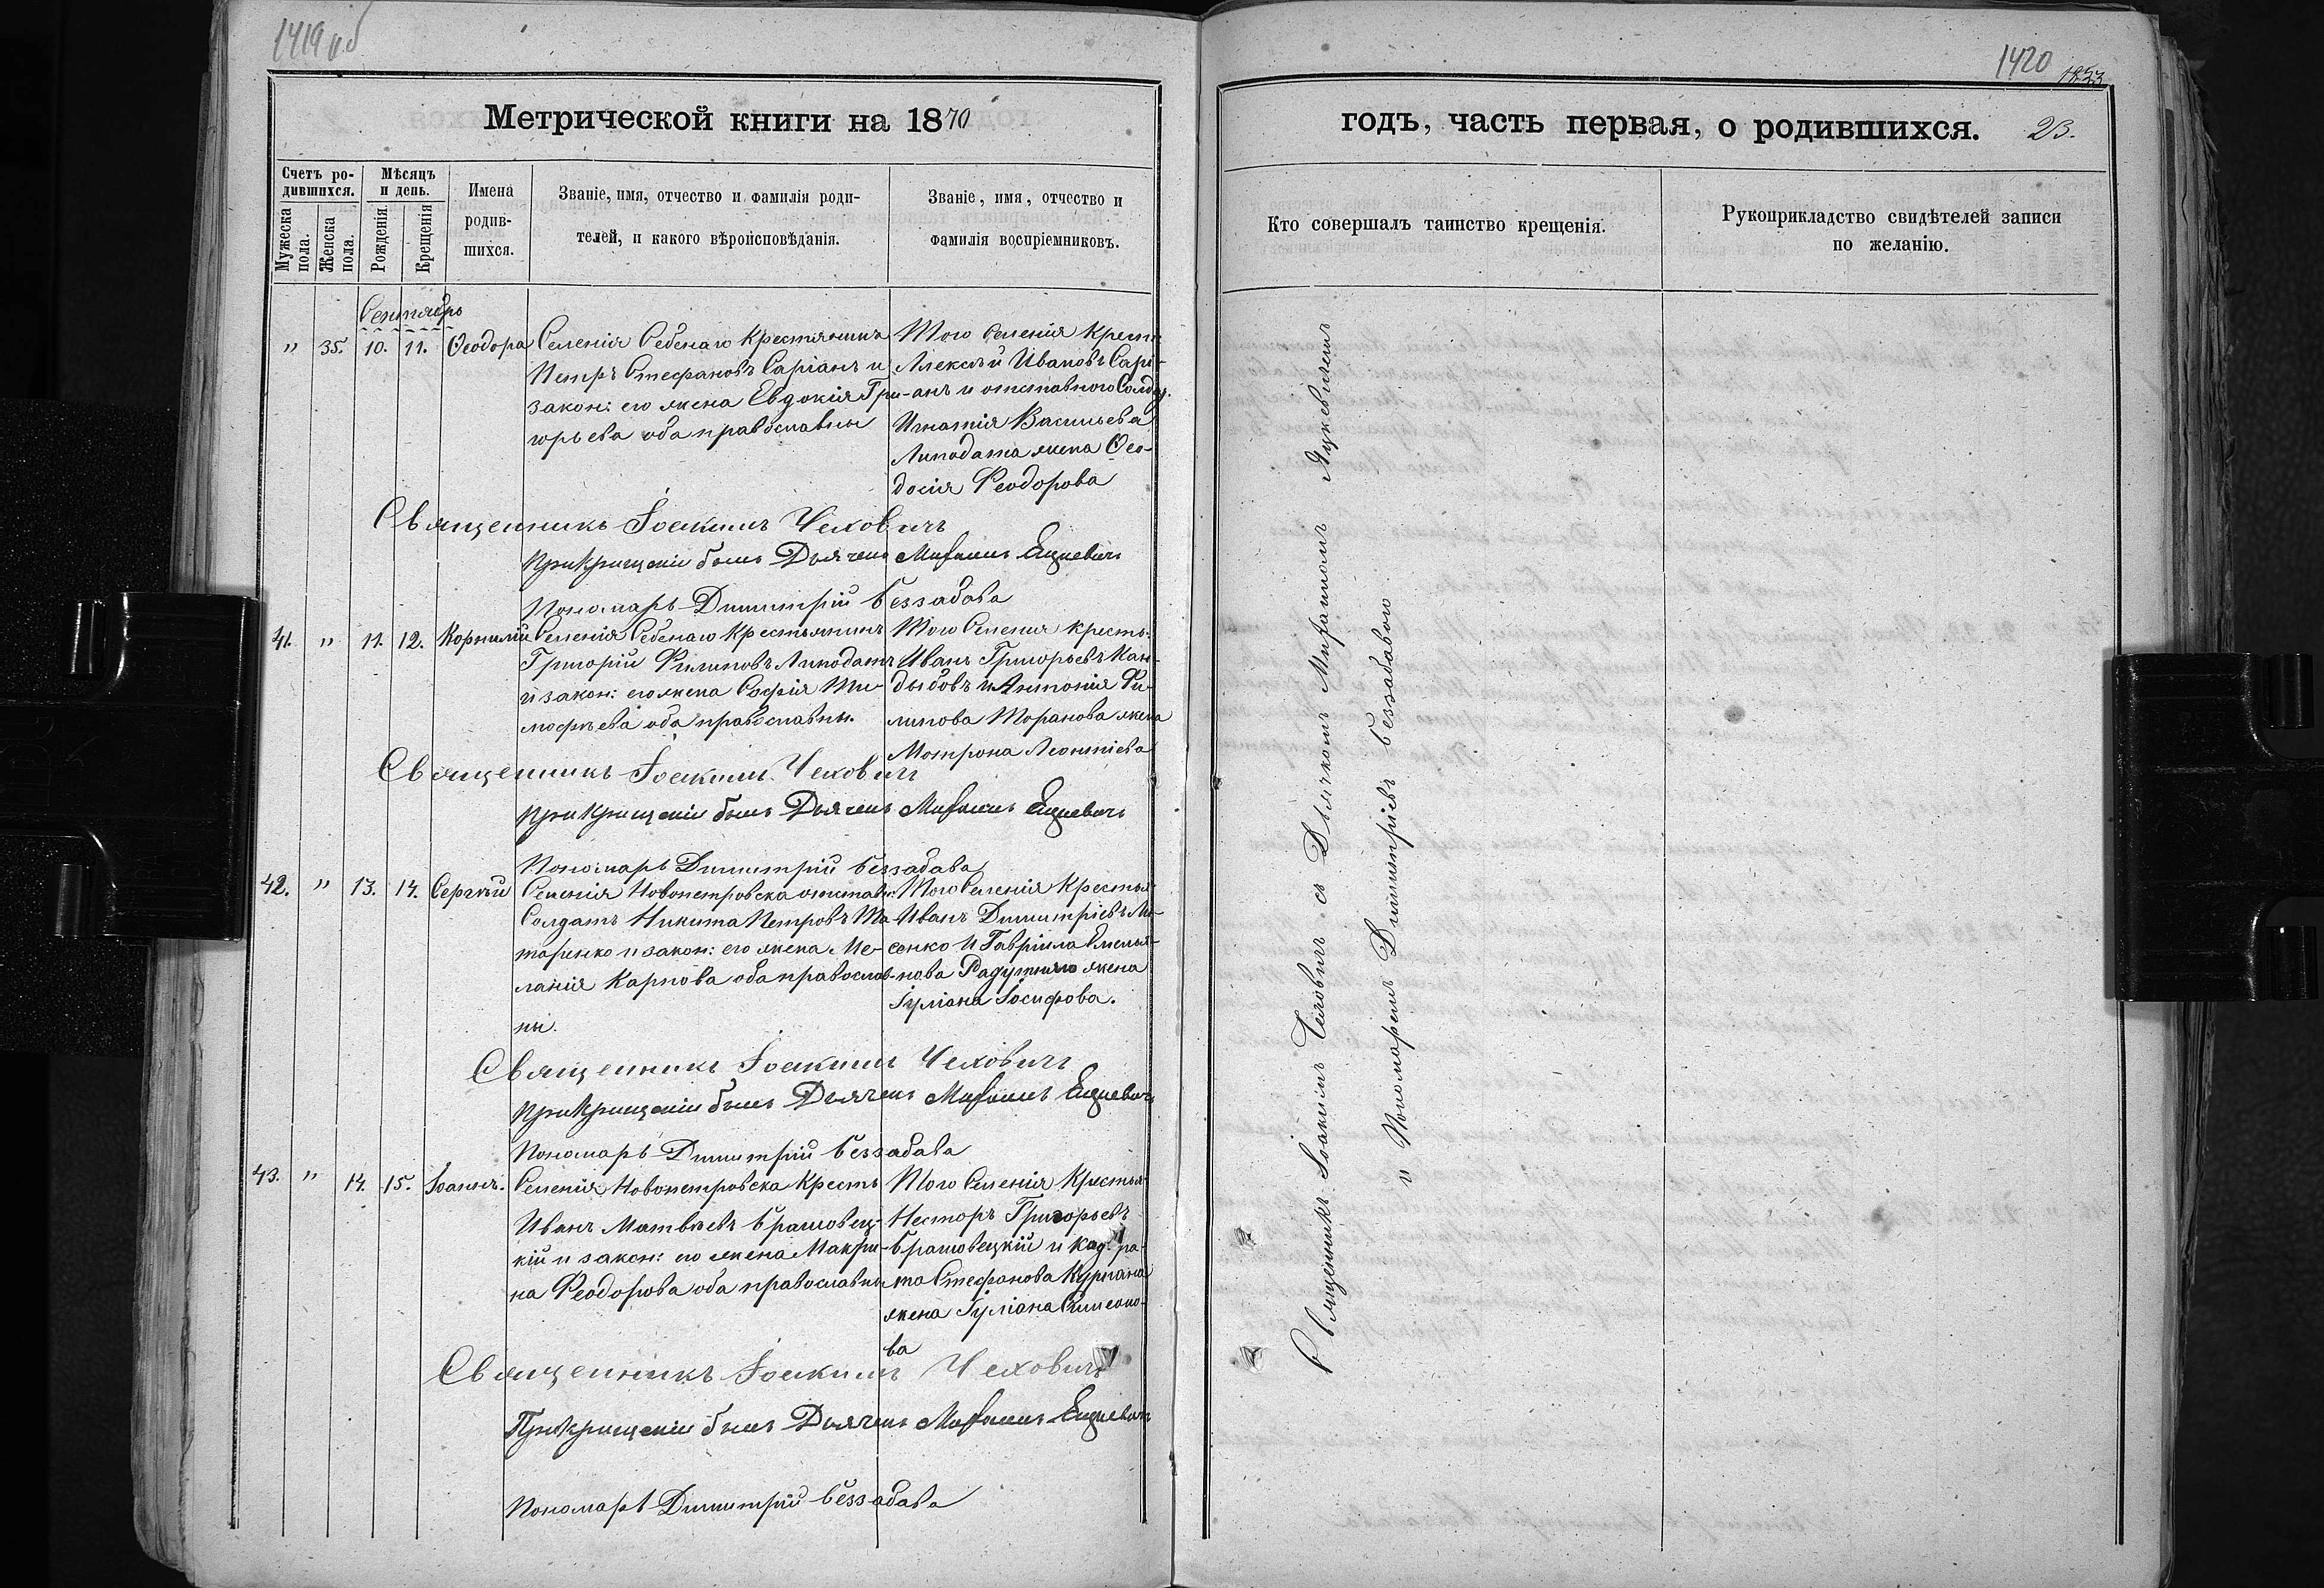 1419 об
Метрической книги на 1870
Счетъ ро-
дившихся.
Мѣсяцъ
и день.
Мужеска
пола.
Женска
пола.
Рожденія.
Крещенія
Имена
родив-
шихся.
Званіе, имя, отчество и фамилія роди-
телей, и какого вѣроисповѣданія.
Званіе, имя, отчество и
фамилія воспріемниковъ.
Сентябрь
" 35. 10. 11. Ѳеодора
Селенія Себенаго Крестянинъ
Петръ Стефановъ Саріанъ и
закон: его жена Евдокія Гри-
горьева оба православны
Того Селенія Крестя
Алексѣй Ивановъ Сарі-
анъ и отставного Солдат.
Игнатія Васильева
Липодата жена Ѳео-
досія Феодорова
Священникъ Іоакимъ Чеховичъ
При Крищеніи былъ Дьячекъ Мифаилъ Ецкевичъ
Пономарь Димитрій Беззабава
41. " 11. 12. Корнилій
Селенія Себенаго Крестьянинъ
Григорій Филиповъ Липодатъ
и закон: его жена Софія Ти-
мофѣева оба православны.
Того Селенія кресть.
Иванъ Григорьевъ Кан-
дыбовъ и Антонія Фи-
липова Торанова жена
Мотрона Леонтіева
Священникъ Іоакимъ Чеховичъ
При Крищеніи былъ Дьячекъ Мифаилъ Ецкевичъ
Пономарь Димитрій Беззабава
42. " 13. 14. Сергѣй
Селенія Новопетровска отставн:
Солдатъ Никита Петровъ Та-
таренко и закон: его жена Ме-
ланія Карпова оба православ-
ны.
Того Селенія Крестья
Иванъ Димитріевъ Ли-
сенко и Гавріила Емелья-
нова Радутняго жена
Іуліана Іосифова.
Священникъ Іоакимъ Чеховичъ
При Крищеніи былъ Дьячекъ Мифаилъ Ецкевичъ
Пономарь Димитрій Беззабава
43. " 14. 15. Іоаннъ.
Селенія Новопетровска Кресть
Иванъ Матвѣевъ Брашовец-
кій и закон: его жена Макри-
на Феодорова оба православны
Того Селенія Крестья
Несторъ Григорьевъ
Брашовецкій и Код-ра-
та Стефанова Кургана
жена Іуліана Симеоно-
ва
Священникъ Іоакимъ Чеховичъ
При Крищеніи былъ Дьячекъ Мифаилъ Ецкевичъ
Пономарь Димитрій Беззабава
1420
годъ, часть первая, о родившихся. 23.
Кто совершалъ таинство крещенія.
Рукоприкладство свидѣтелей записи
по желанію.
Священникъ Іоакимъ Чеховичъ съ Дьячкомъ Мифаиломъ Яцкевичемъ
и Пономаремъ Димитріевъ Беззабавою